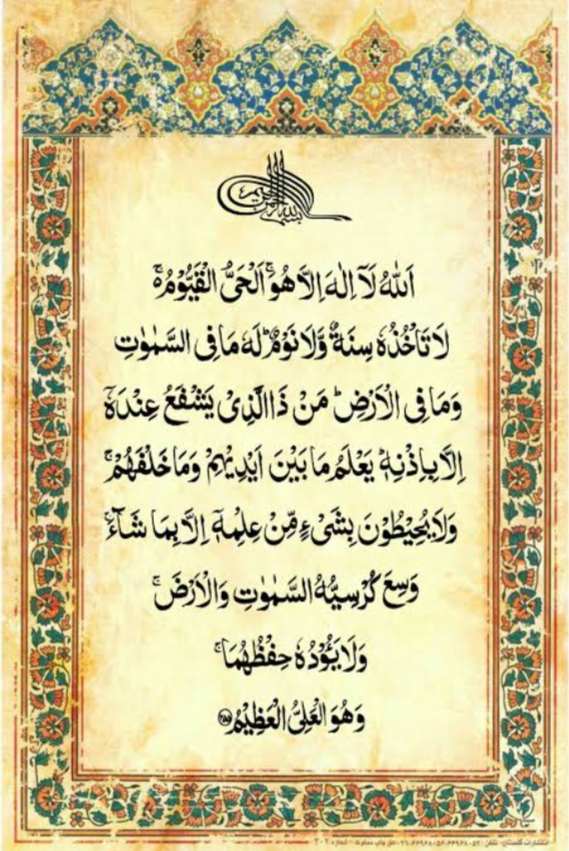 بسم الله الرحمن الرحيم
اَللّٰهُ لَآ اِلٰهَ اِلَّا هُوَۚ اَلْحَیُّ الْقَیُّوْمُ ەۚ
لَا تَاْخُذُهٗ سِنَةٌ وَّلَا نَوْمٌؕ لَهٗ مَا فِی السَّمٰوٰتِ
وَمَا فِی الْاَرْضِؕ مَنْ ذَا الَّذِیْ یَشْفَعُ عِنْدَهٗۤ
اِلَّا بِاِذْنِهٖؕ یَعْلَمُ مَا بَیْنَ اَیْدِیْهِمْ وَمَا خَلْفَهُمْۚ
وَلَا یُحِیْطُوْنَ بِشَیْءٍ مِّنْ عِلْمِهٖۤ اِلَّا بِمَا شَآءَۚ
وَسِعَ كُرْسِیُّهُ السَّمٰوٰتِ وَالْاَرْضَۚ
وَلَا یَـُٔوْدُهٗ حِفْظُهُمَاۚ
وَهُوَ الْعَلِیُّ الْعَظِیْمُ